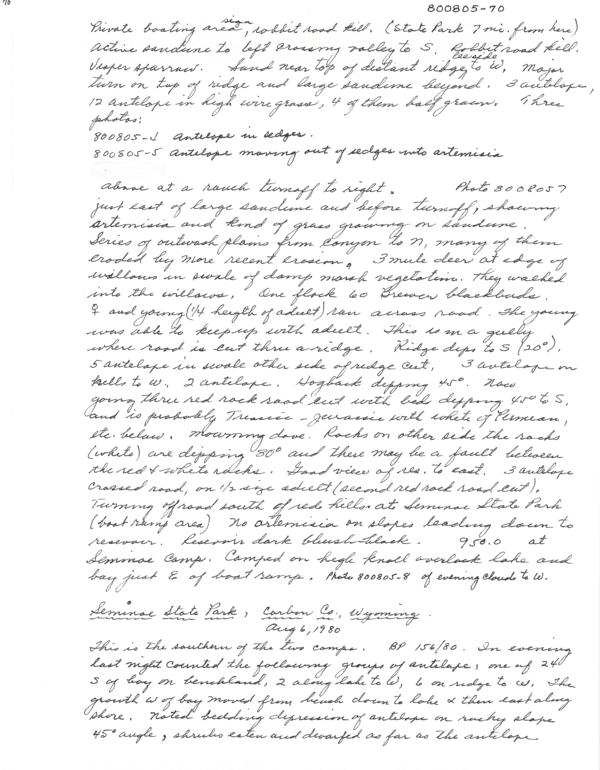 800805-70
Private boating area sign, rabbit road kill. (State Park 7 mi. from here)
Active sandune to left crossing valley to S. Rabbit road kill.
Vesper sparrow. Sand near top of distant ridge, leeside to W. Major
turn on top of ridge and large sandune beyond. 3 antelope,
12 antelope in high wire grass, 4 of them half grown. Three
photos:
800805-J Antelope in sedges.
800805-5 Antelope moving out of sedges into artemisia
above at a ranch turnoff to right. Photo 8008057
just east of large sandune and before turnoff, showing
artemisia and kind of grass growing on sandune.
Series of outwash plains from Canyon to N, many of them
eroded by more recent erosion. 3 mule deer at edge of
willows in swale of damp marsh vegetation. They walked
into the willows. One flock 60 Brewer blackbirds.
♀ and young (1/4 heigth of adult) ran across road. The young
was able to keep up with adult. This is in a gully
where road is cut thru a ridge. Ridge dips to S (20°).
5 antelope in swale other side of ridge cut. 3 antelope on
hills to W. 2 antelope. Hogback dipping 45°. Now
going thru red rock road cut with bed dipping 45° to S.
and is probably Triassic - Jurassic with white of Permian,
etc. below. Mourning dove. Rocks on other side the rocks
(white) are dipping 80° and there may be a fault between
the red & white rocks. Good view of res. to east. 3 antelope
crossed road, on 1/2 size adult (second red rock road cut).
Turning off road south of red hills at Seminoe State Park
(boat ramp area) No artemisia on slopes leading down to
reservoir. Reservoir dark bluish black. 950.0 at
Seminoe Camp. Camped on high knoll overlook lake and
bay just E of boat ramp. Photo 800805-8 of evening clouds to W.
Seminoe State Park, Carbon Co., Wyoming.
Aug 6, 1980
This is the southern of the two camps. BP 156/80. In evening
last night counted the following groups of antelope; one of 24
S of bay on benchland, 2 along lake to W, 6 on ridge to W. The
growth W of bay moved from bench down to lake & then east along
shore. Noted bedding depression of antelope on rocky slope
45° angle, shrubs eaten and dwarfed as far as the antelope